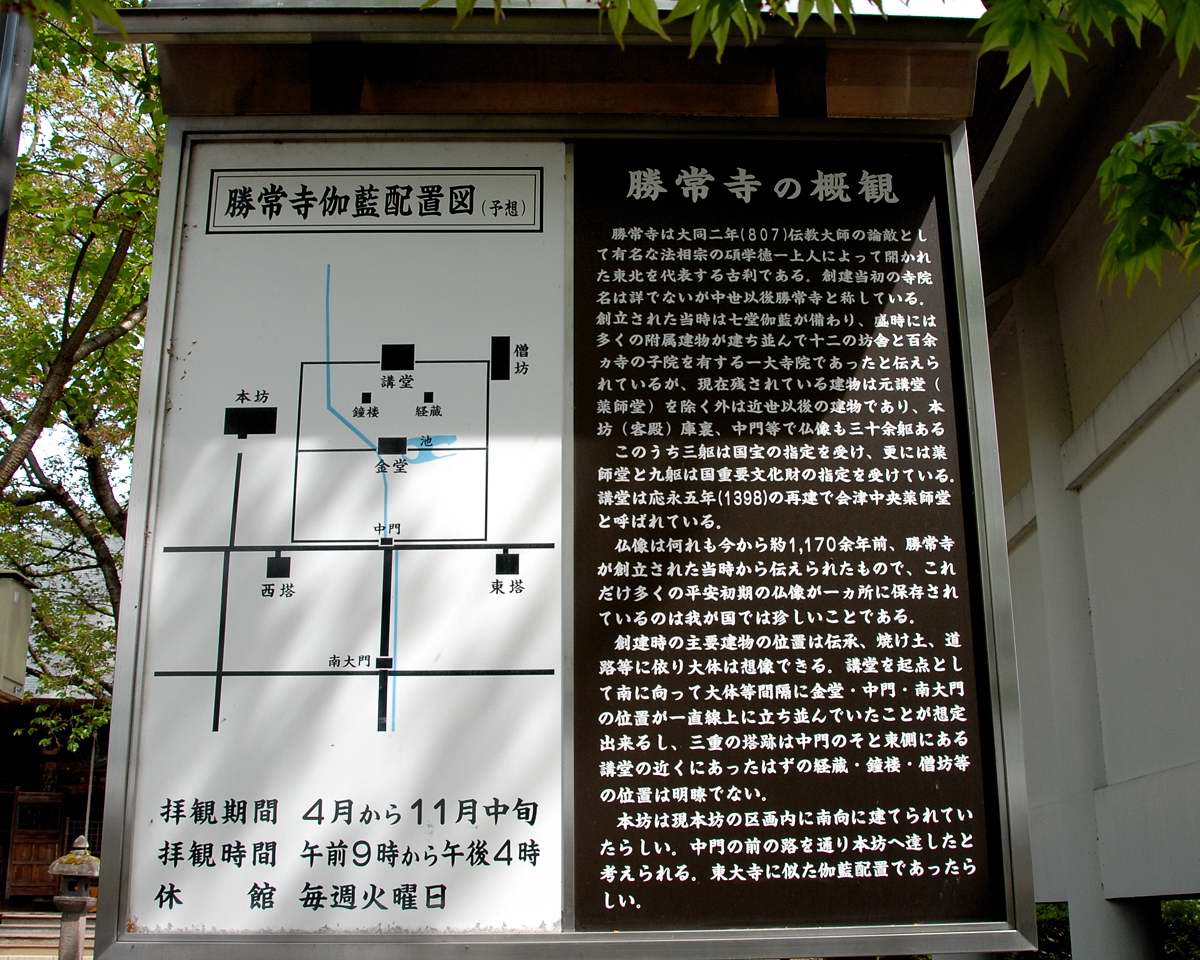 勝常寺伽藍配置図(予想)
僧坊
講堂
本坊
鐘楼
経蔵
池
金堂
中門
西塔
東塔
南大門
拝観期間 4月から11月中旬
拝観時間 午前9時から午後4時
休館 毎週火曜日
勝常寺の概観
勝常寺は大同二年(807)伝教大師の論敵とし
て有名な法相宗の碩学徳一上人によって開かれ
た東北を代表する古刹である。創建当初の寺院
名は詳でないが中世以後勝常寺と称している。
創立された当時は七堂伽藍が備わり、盛時には
多くの附属建物が建ち並んで十二の坊舎と百余
カ寺の子院を有する一大寺院であったと伝えら
れているが、現在残されている建物は元講堂(
薬師堂)を除く外は近世以後の建物であり、本
坊(客殿)庫裏、中門等で仏像も三十余躯ある
このうち三躯は国宝の指定を受け、更には薬
師堂と九躯は国重要文化財の指定を受けている。
講堂は応永五年(1398)の再建で会津中央薬師堂
と呼ばれている。
仏像は何れも今から約1,170余年前、勝常寺
が創立された当時から伝えられたもので、これ
だけ多くの平安初期の仏像が一ヵ所に保存され
ているのは我が国では珍しいことである。
創建時の主要建物の位置は伝承、焼け土、道
路等に依り大体は想像できる。講堂を起点とし
て南に向って大体等間隔に金堂・中門・南大門
の位置が一直線上に立ち並んでいたことが想定
出来るし、三重の塔跡は中門のそと東側にある
講堂の近くにあったはずの経蔵・鐘楼・僧坊等
の位置は明瞭でない。
本坊は現本坊の区画内に南向に建てられてい
たらしい。中門の前の路を通り本坊へ達したと
考えられる。東大寺に似た伽藍配置であったら
しい。